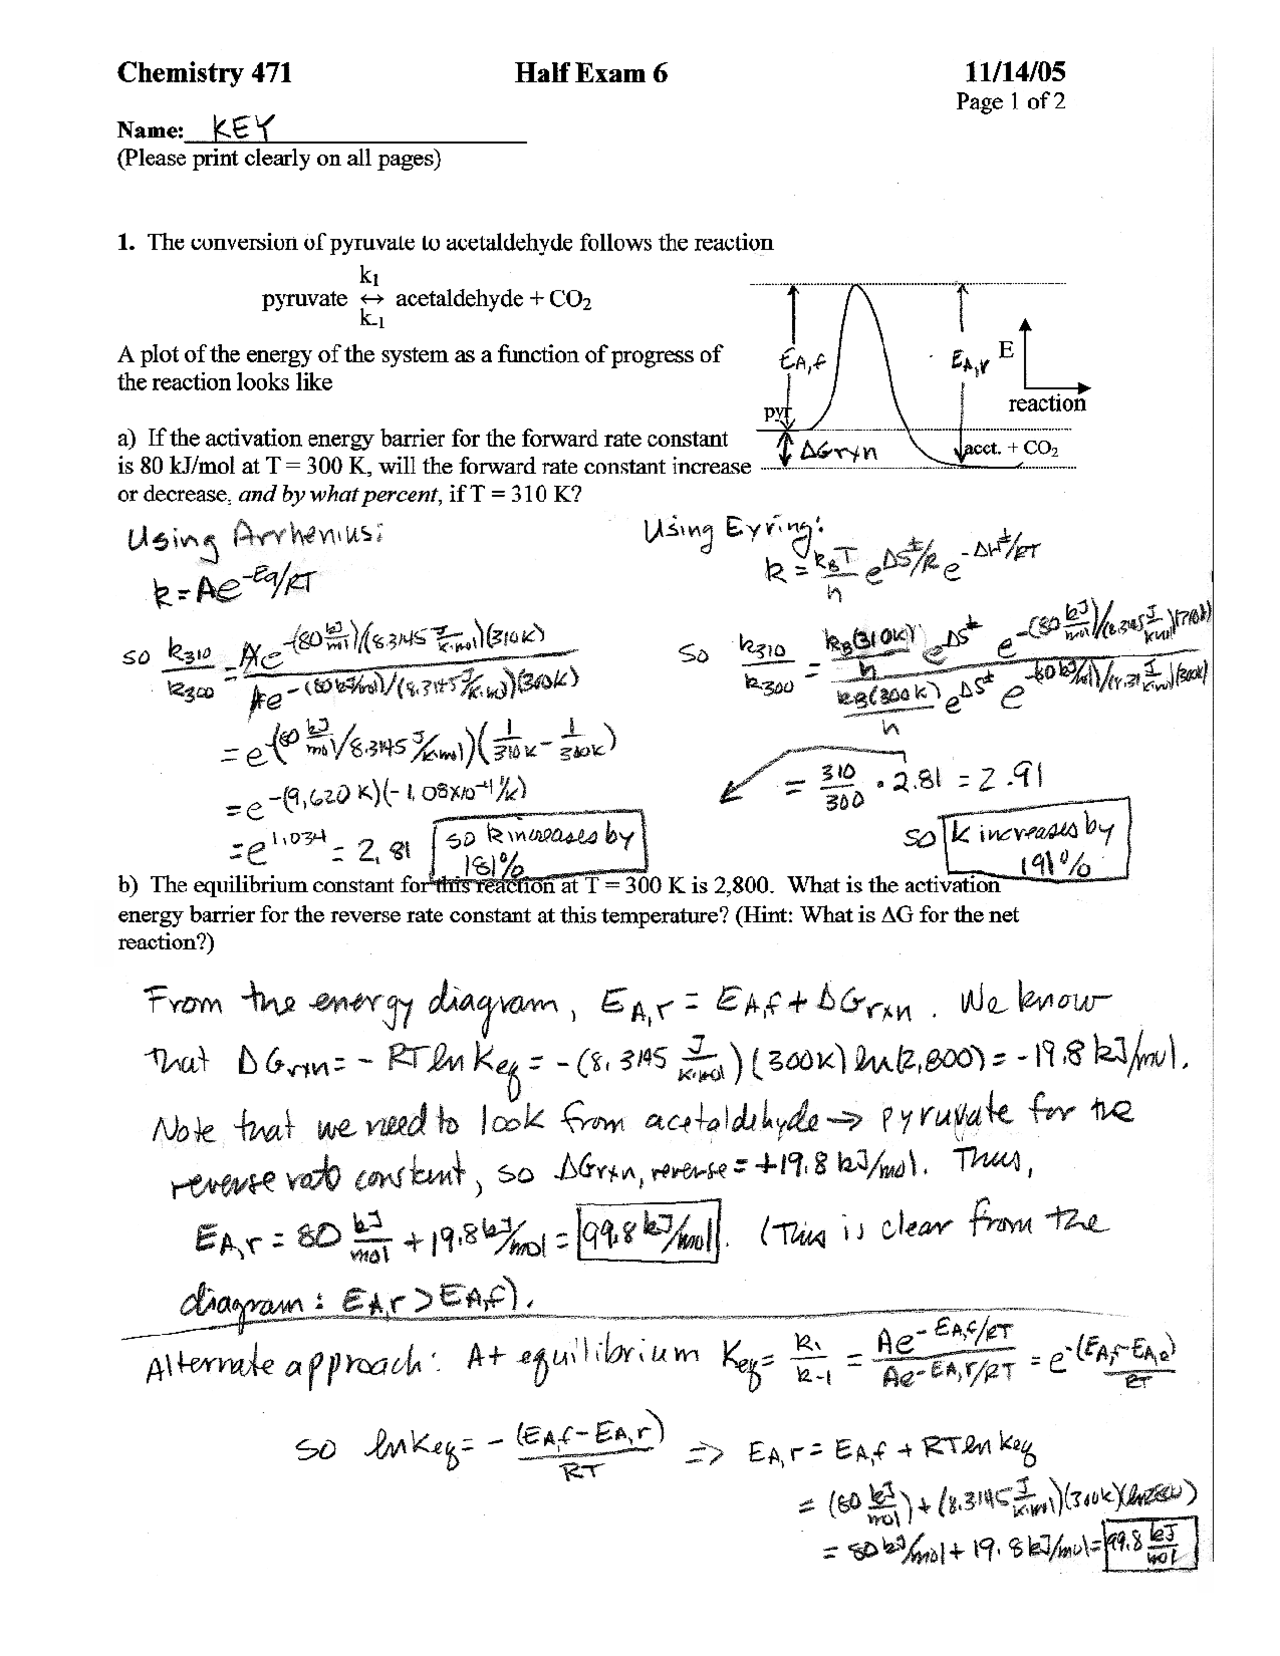 Chemistry 471 Half Exam 6 11/14/05
Page 1 of 2
Name: KEY
(Please print clearly on all pages)
1. The conversion of pyruvate to acetaldehyde follows the reaction
k₁
pyruvate ↔ acetaldehyde + CO₂
k₋₁
A plot of the energy of the system as a function of progress of
the reaction looks like
E_A,f
E_A,r
E
reaction
pyr.
ΔGrxn
acet. + CO₂
a) If the activation energy barrier for the forward rate constant
is 80 kJ/mol at T = 300 K, will the forward rate constant increase
or decrease, and by what percent, if T = 310 K?
Using Arrhenius:
k = Ae^-Ea/RT
so k310/k300 = Ae^-(80 kJ/mol)/(8.3145 J/K·mol)(310K) / Ae^-(80 kJ/mol)/(8.3145 J/K·mol)(300K)
= e^-(80 kJ/mol/8.3145 J/K·mol)(1/310K - 1/300K)
= e^-(9,620 K)(-1.08x10^-4 1/K)
= e^1.034 = 2.81 so k increases by
181%
Using Eyring:
k = kBT/h e^ΔS‡/R e^-ΔH‡/RT
so k310/k300 = kB(310K)/h e^ΔS‡ e^-(80 kJ/mol)/(8.3145 J/K·mol)(310K) / kB(300K)/h e^ΔS‡ e^-(80 kJ/mol)/(8.31 J/K·mol)(300K)
= 310/300 · 2.81 = 2.91
so k increases by
191%
b) The equilibrium constant for this reaction at T = 300 K is 2,800. What is the activation
energy barrier for the reverse rate constant at this temperature? (Hint: What is ΔG for the net
reaction?)
From the energy diagram, E_A,r = E_A,f + ΔGrxn. We know
that ΔGrxn = - RT ln Keq = -(8.3145 J/K·mol)(300K) ln(2,800) = -19.8 kJ/mol.
Note that we need to look from acetaldehyde → pyruvate for the
reverse rate constant, so ΔGrxn, reverse = +19.8 kJ/mol. Thus,
E_A,r = 80 kJ/mol + 19.8 kJ/mol = 99.8 kJ/mol. (This is clear from the
diagram: E_A,r > E_A,f).
Alternate approach: At equilibrium Keq = k₁/k₋₁ = Ae^-E_A,f/RT / Ae^-E_A,r/RT = e^-(E_A,f-E_A,r)/RT
so ln Keq = -(E_A,f - E_A,r)/RT ⇒ E_A,r = E_A,f + RT ln Keq
= (80 kJ/mol) + (8.3145 J/K·mol)(300K)(ln 2800)
= 80 kJ/mol + 19.8 kJ/mol = 99.8 kJ/mol